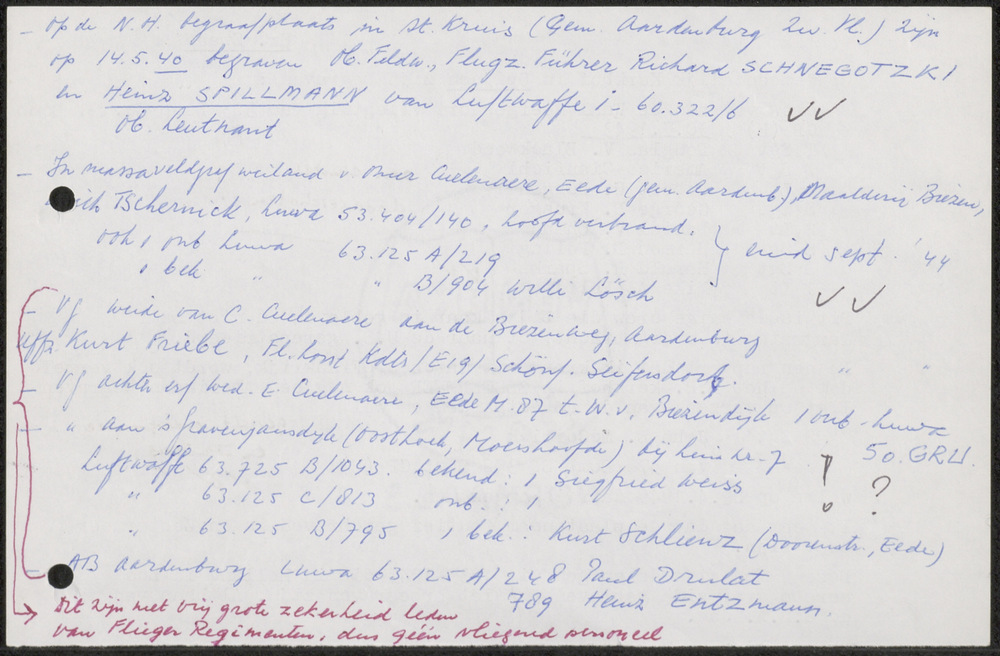 - op de N.H. begraafplaats in St. Kruis (Gem. Aardenburg Zw. Vl.) zijn
op 14.5.40 begraven Ob. Feldw., Flugz. Führer Richard SCHNEGOTZKI
en Heinz SPILLMANN van Luftwaffe i - 60.322/6
Ob. Leutnant
- In massaveldgraf weiland v. Omer Cuelenaere, Eede (gem. Aardenb.), Maalderij Biezen,
Tschernick, Luwa 53.404/140, hoofd verbrand.
ook 1 onb Luwa 63.125 A/219
eind sept. '44
1 bek " " B/904 Willi Lösch
- Vg weide van C. Cuelenaere aan de Biezenweg, Aardenburg
Uffz. Kurt Friebe, Fl. horst Kdtr/E19/ Schönf. Seifersdorf. " "
- Vg achter erf wed. E. Cuelenaere, Eede M. 87 t.w.v. Biezendijk 1 onb. Luwa
- " aan 's Gravenjansdijk (Oosthoek, Moershoofde) bij huis nr. 7 50.GRU.
Luftwaffe 63.725 B/1043. bekend: 1 Siegfried Weiss ! ?
" 63.125 C/813 onb. : 1
" 63.125 B/795 1 bek.: Kurt Schlienz (Doorenstr., Eede)
- AB Aardenburg Luwa 63.125 A/248 Paul Drulat
789 Heinz Entzmann.
Dit zijn met vrij grote zekerheid leden
van Flieger Regimenten, dus géén vliegend personeel